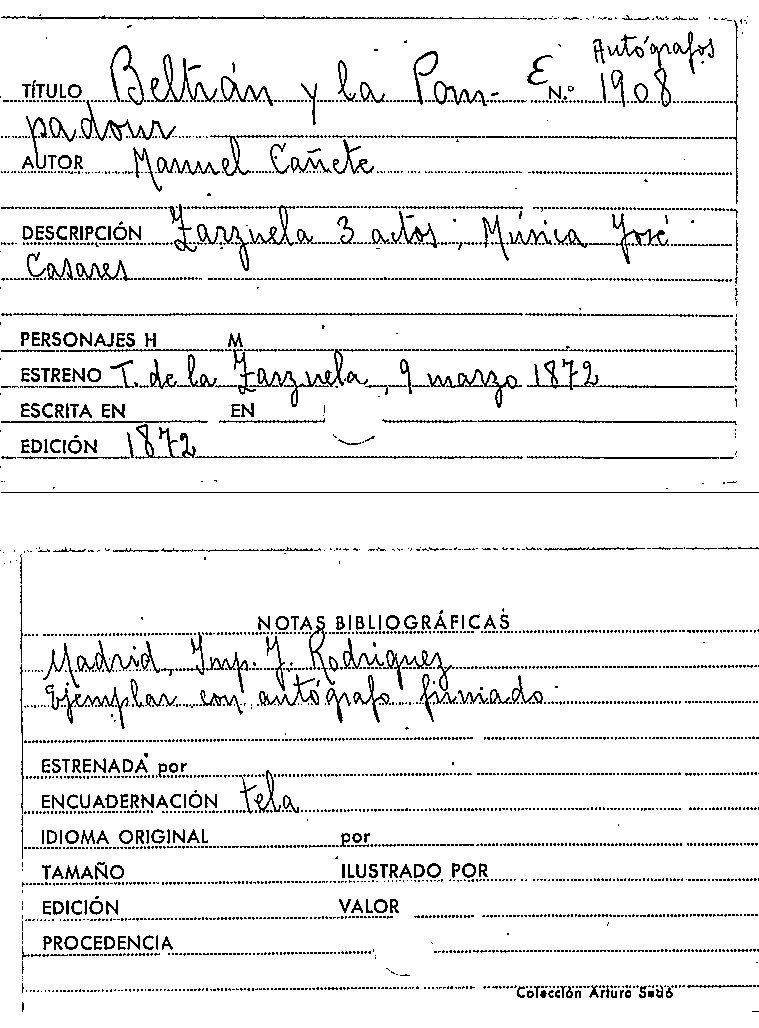 Autógrafos
TÍTULO Beltrán y la Pom- E N.º 1908
padour
AUTOR Manuel Cañete
DESCRIPCIÓN Zarzuela 3 actos; Música José
Casares
PERSONAJES H M
ESTRENO T. de la Zarzuela, 9 marzo 1872
ESCRITA EN EN
EDICIÓN 1872
NOTAS BIBLIOGRÁFICAS
Madrid, Imp. J. Rodriguez
Ejemplar con autógrafo firmado
ESTRENADA por
ENCUADERNACIÓN tela
IDIOMA ORIGINAL por
TAMAÑO ILUSTRADO POR
EDICIÓN VALOR
PROCEDENCIA
Colección Arturo Sedó